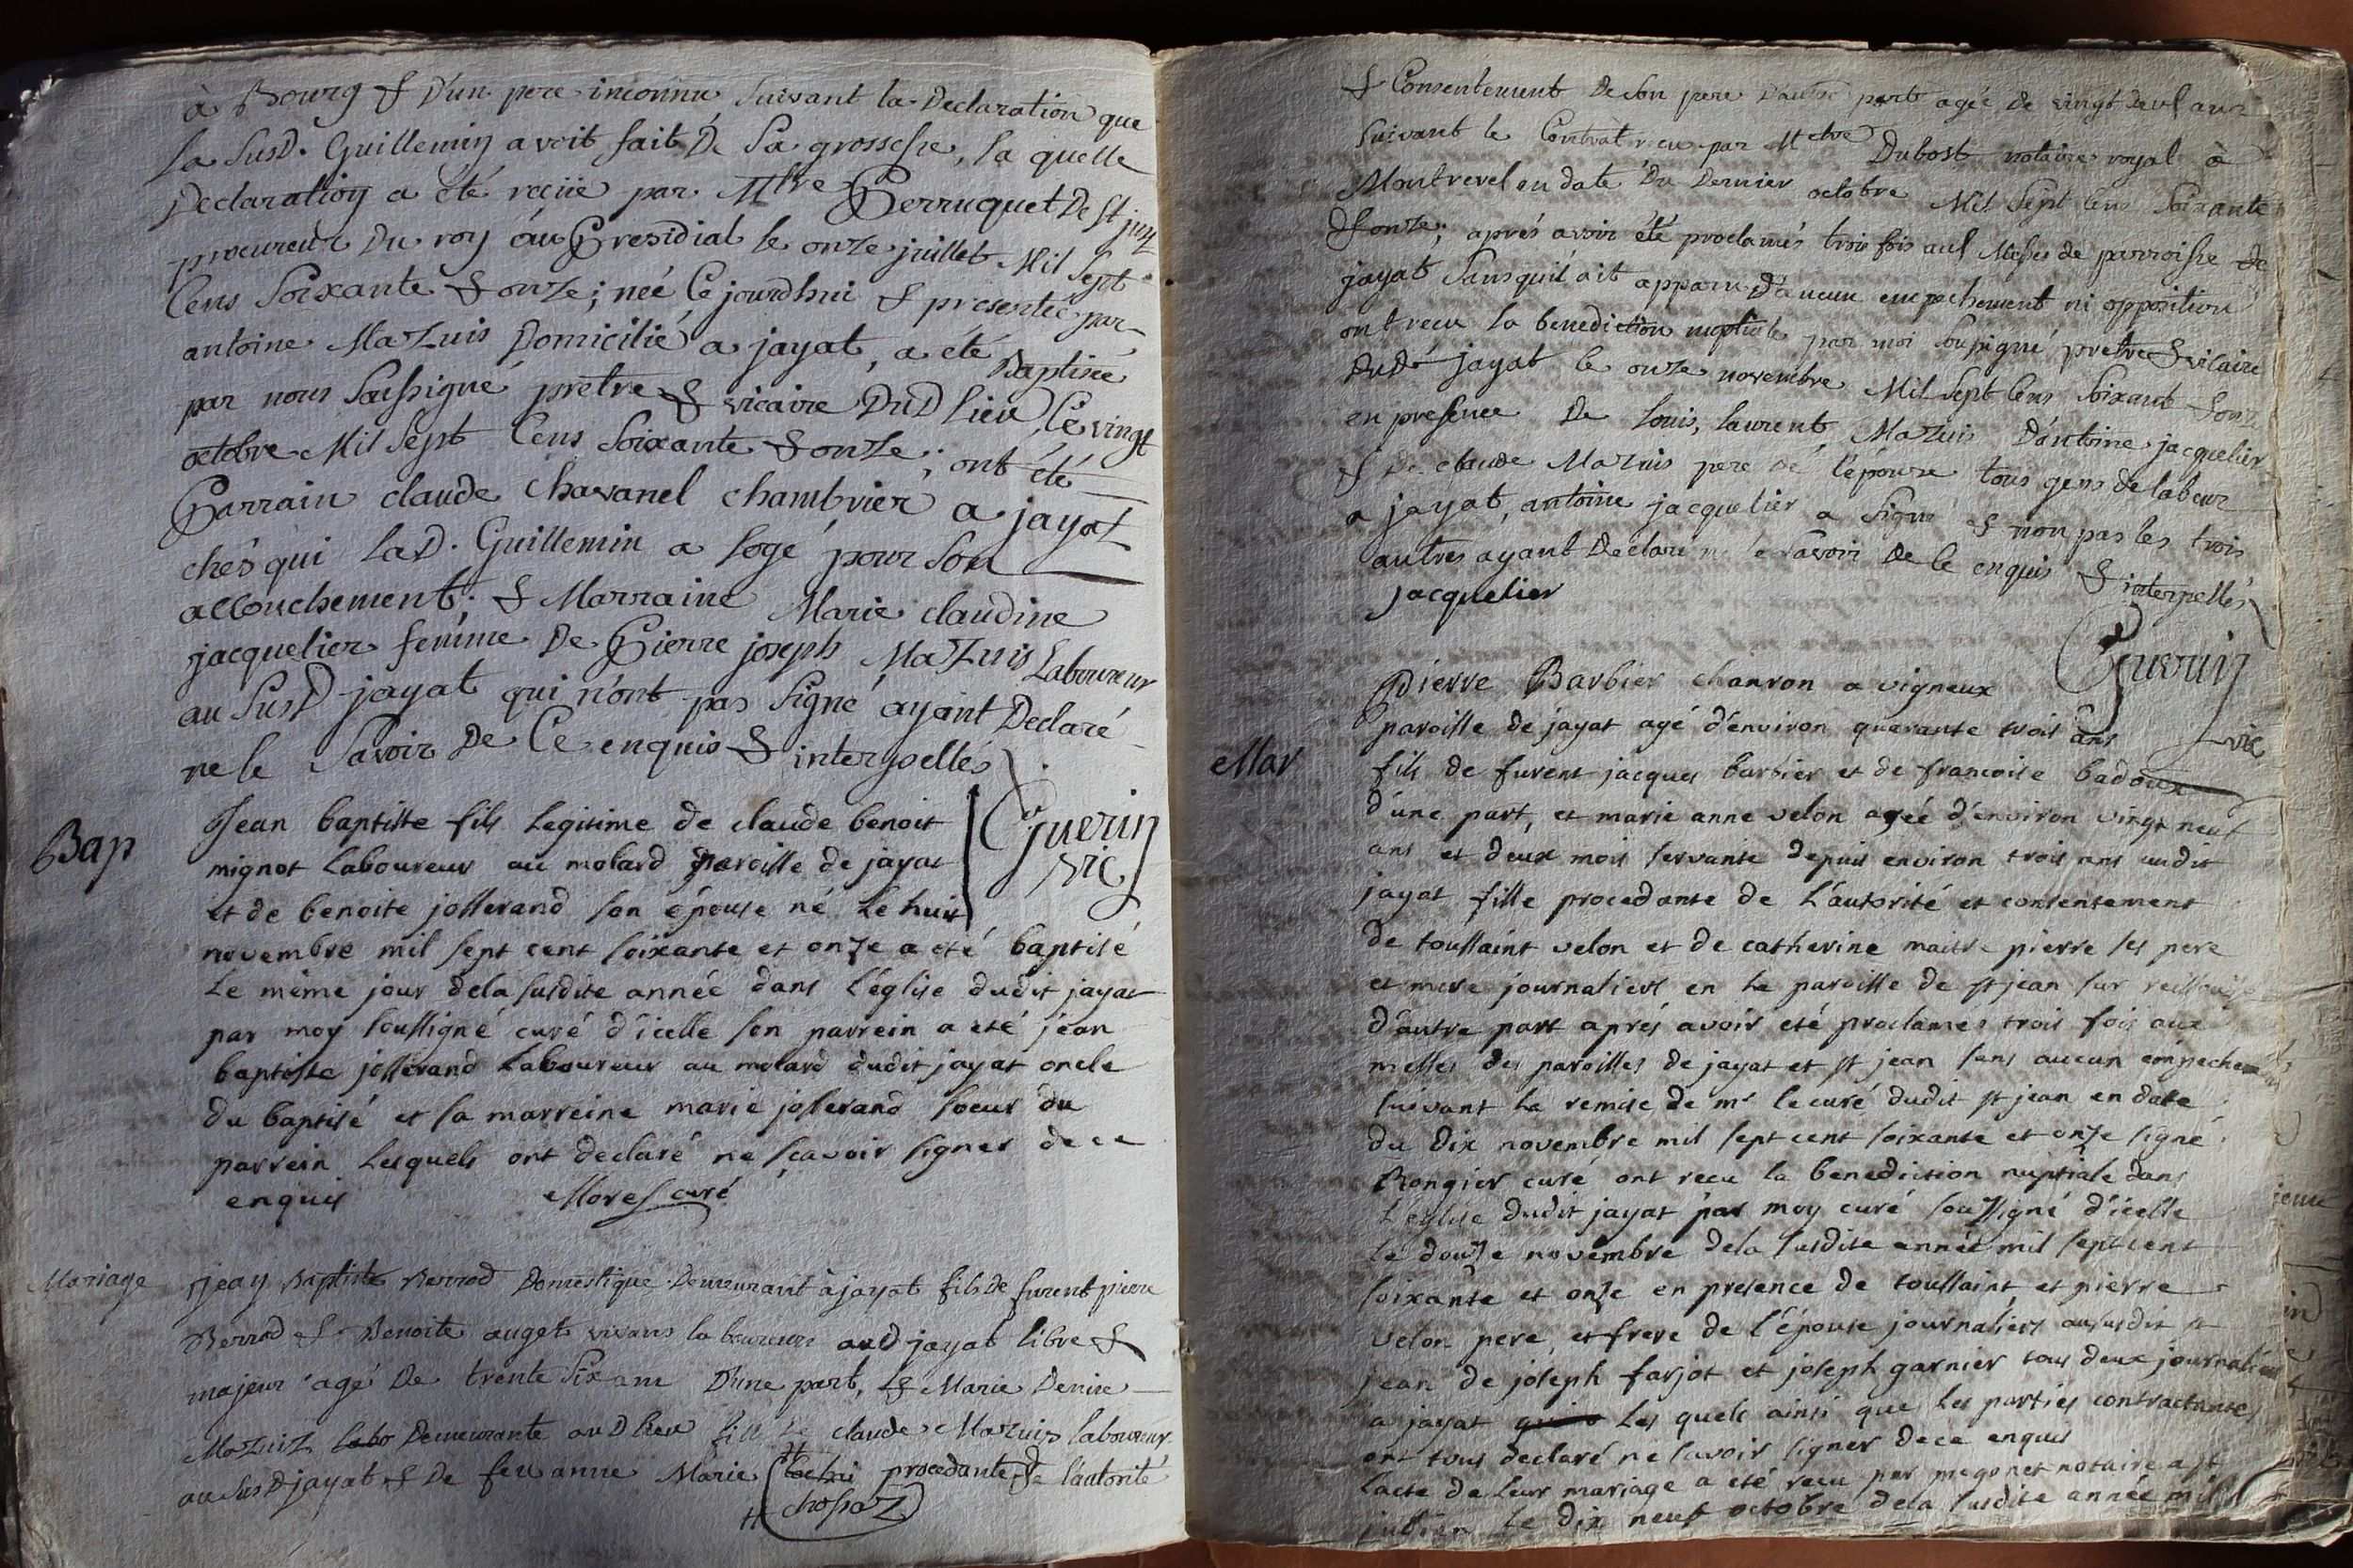 à Bourg & D'un pere inconnu suivant la Declaration que
la susD. Guillemin avoit fait De Sa grossesse, la quelle
Declaration a été reçüe par Mtre Perruquet De St
procureur Du roy au Presidial le onze juillet Mil Sept
Cens Soixante & onze; née Ce jourdhui & presentée par
antoine MaZuis Domicilié a jayat, a été Baptisée
par nous Soussigné prêtre & vicaire DuD lieu, Ce vingt
octobre Mil Sept Cens Soixante & onze; ont été
Parrain claude chavanel chambrier a jayat
chés qui laD. Guillemin a logé pour Son
accouchement; & Marraine Marie claudine
jacquelier femme De Pierre joseph MaZuis Laboureur
au SusD jayat qui n'ont pas Signé ayant Declaré
ne le Savoir De Ce enquis & interpellés
Guerin
vic
Bap
Jean baptiste fils legitime de claude benoit
mignot Laboureur au molard paroisse de jayat
et de benoite josserand son épouse né Le huit
novembre mil sept cent soixante et onze a eté baptisé
Le même jour dela susdite année dans L'église dudit jayat
par moy soussigné curé d'icelle son parrein a eté jean
baptiste josserand Laboureur au molard dudit jayat oncle
du baptisé et sa marreine marie josserand soeur du
parrein Lesquels ont declaré ne sçavoir signer de ce
enquis Morel curé
Mariage
jean Baptiste Berrod Domestique Demeurant à jayat fils de furent pierre
Berrod & Benoite auget vivans laboureurs auD jayat libre &
majeur agé De trente Six ans D'une part, & Marie Denise
MaZuiZ labo Demeurante auD lieu fille De claude Mazuis laboureur
au SusD jayat & De feu anne Marie procedante De l'autorité
# chossaZ
& Consentement De son pere D'autre part agée De vingt Deux ans
Suivant le Contrat recu par Mtre Dubost notaire royal à
Montrevel en date Du Dernier octobre Mil Sept Cens Soixante
& onze; aprés avoir été proclamés trois fois aux Messes de parroisse de
jayat Sans qu'il ait apparu D'aucun empechement ni opposition
ont recu la benediction nuptiale par moi Soussigné prêtre & vicaire
DuDt jayat le onze novembre Mil Sept Cens Soixante & onze
en presence De Louis, laurent MaZuis D'antoine jacquelier
& De claude MaZuis pere De l'épouse tous gens de labeur
a jayat, antoine jacquelier a Signé & non pas les trois
autres ayant Declaré ne le Savoir De Ce enquis & interpellés
jacquelier
Guerin
vic
Mar
Pierre Barbier charron a vigneux
paroisse de jayat agé d'environ quarante trois ans
fils de furent jacques barbier et de francoise badoux
d'une part, et marie anne velon agée d'environ vingt neuf
ans et deux mois servante depuis environ trois ans audit
jayat fille procedante de L'autorité et consentement
de toussaint velon et de catherine maitre pierre ses pere
et mere journaliers en La paroisse de st jean sur
d'autre part aprés avoir eté proclames trois fois aux
messes des paroisses de jayat et st jean sans aucun empechement
suivant La remise de mr le curé dudit st jean en date
du dix novembre mil sept cent soixante et onze signé
Rongier curé ont recu la benediction nuptiale dans
L'eglise dudit jayat par moy curé soussigné d'icelle
Le douze novembre dela susdite année mil sept cent
soixante et onze en presence de toussaint et pierre
velon pere, et frere de l'épouse journaliers au susdit st
jean de joseph farjot et joseph garnier tous deux journaliers
a jayat Les quels ainsi que Les parties contractantes
ont tous declaré ne savoir signer dece enquis
Lacte de Leur mariage a eté recu par notaire a st
julien Le dix neuf octobre dela susdite année mil